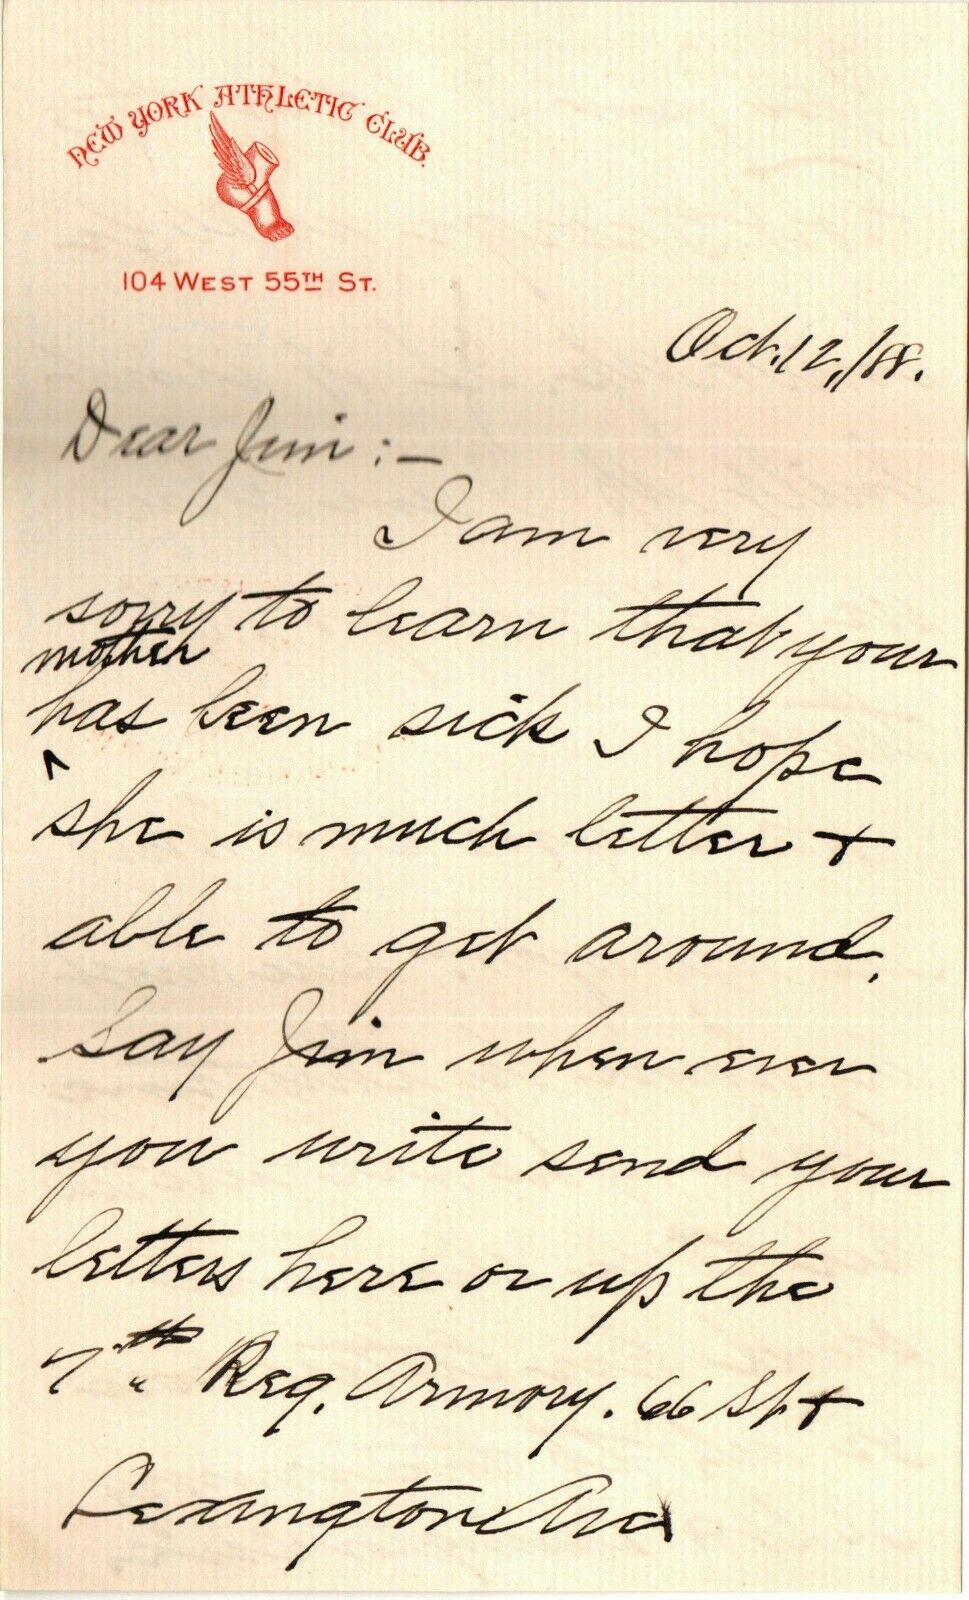 NEW YORK ATHLETIC CLUB.
104 WEST 55TH ST.
Oct. 12,/88.
Dear Jim :-
I am very
sorry to learn that your
mother
has been sick I hope
^
she is much better +
able to get around.
Say Jim when ever
you write send your
letters here or up the
7th Reg. Armory. 66 St. +
Lexington Ave